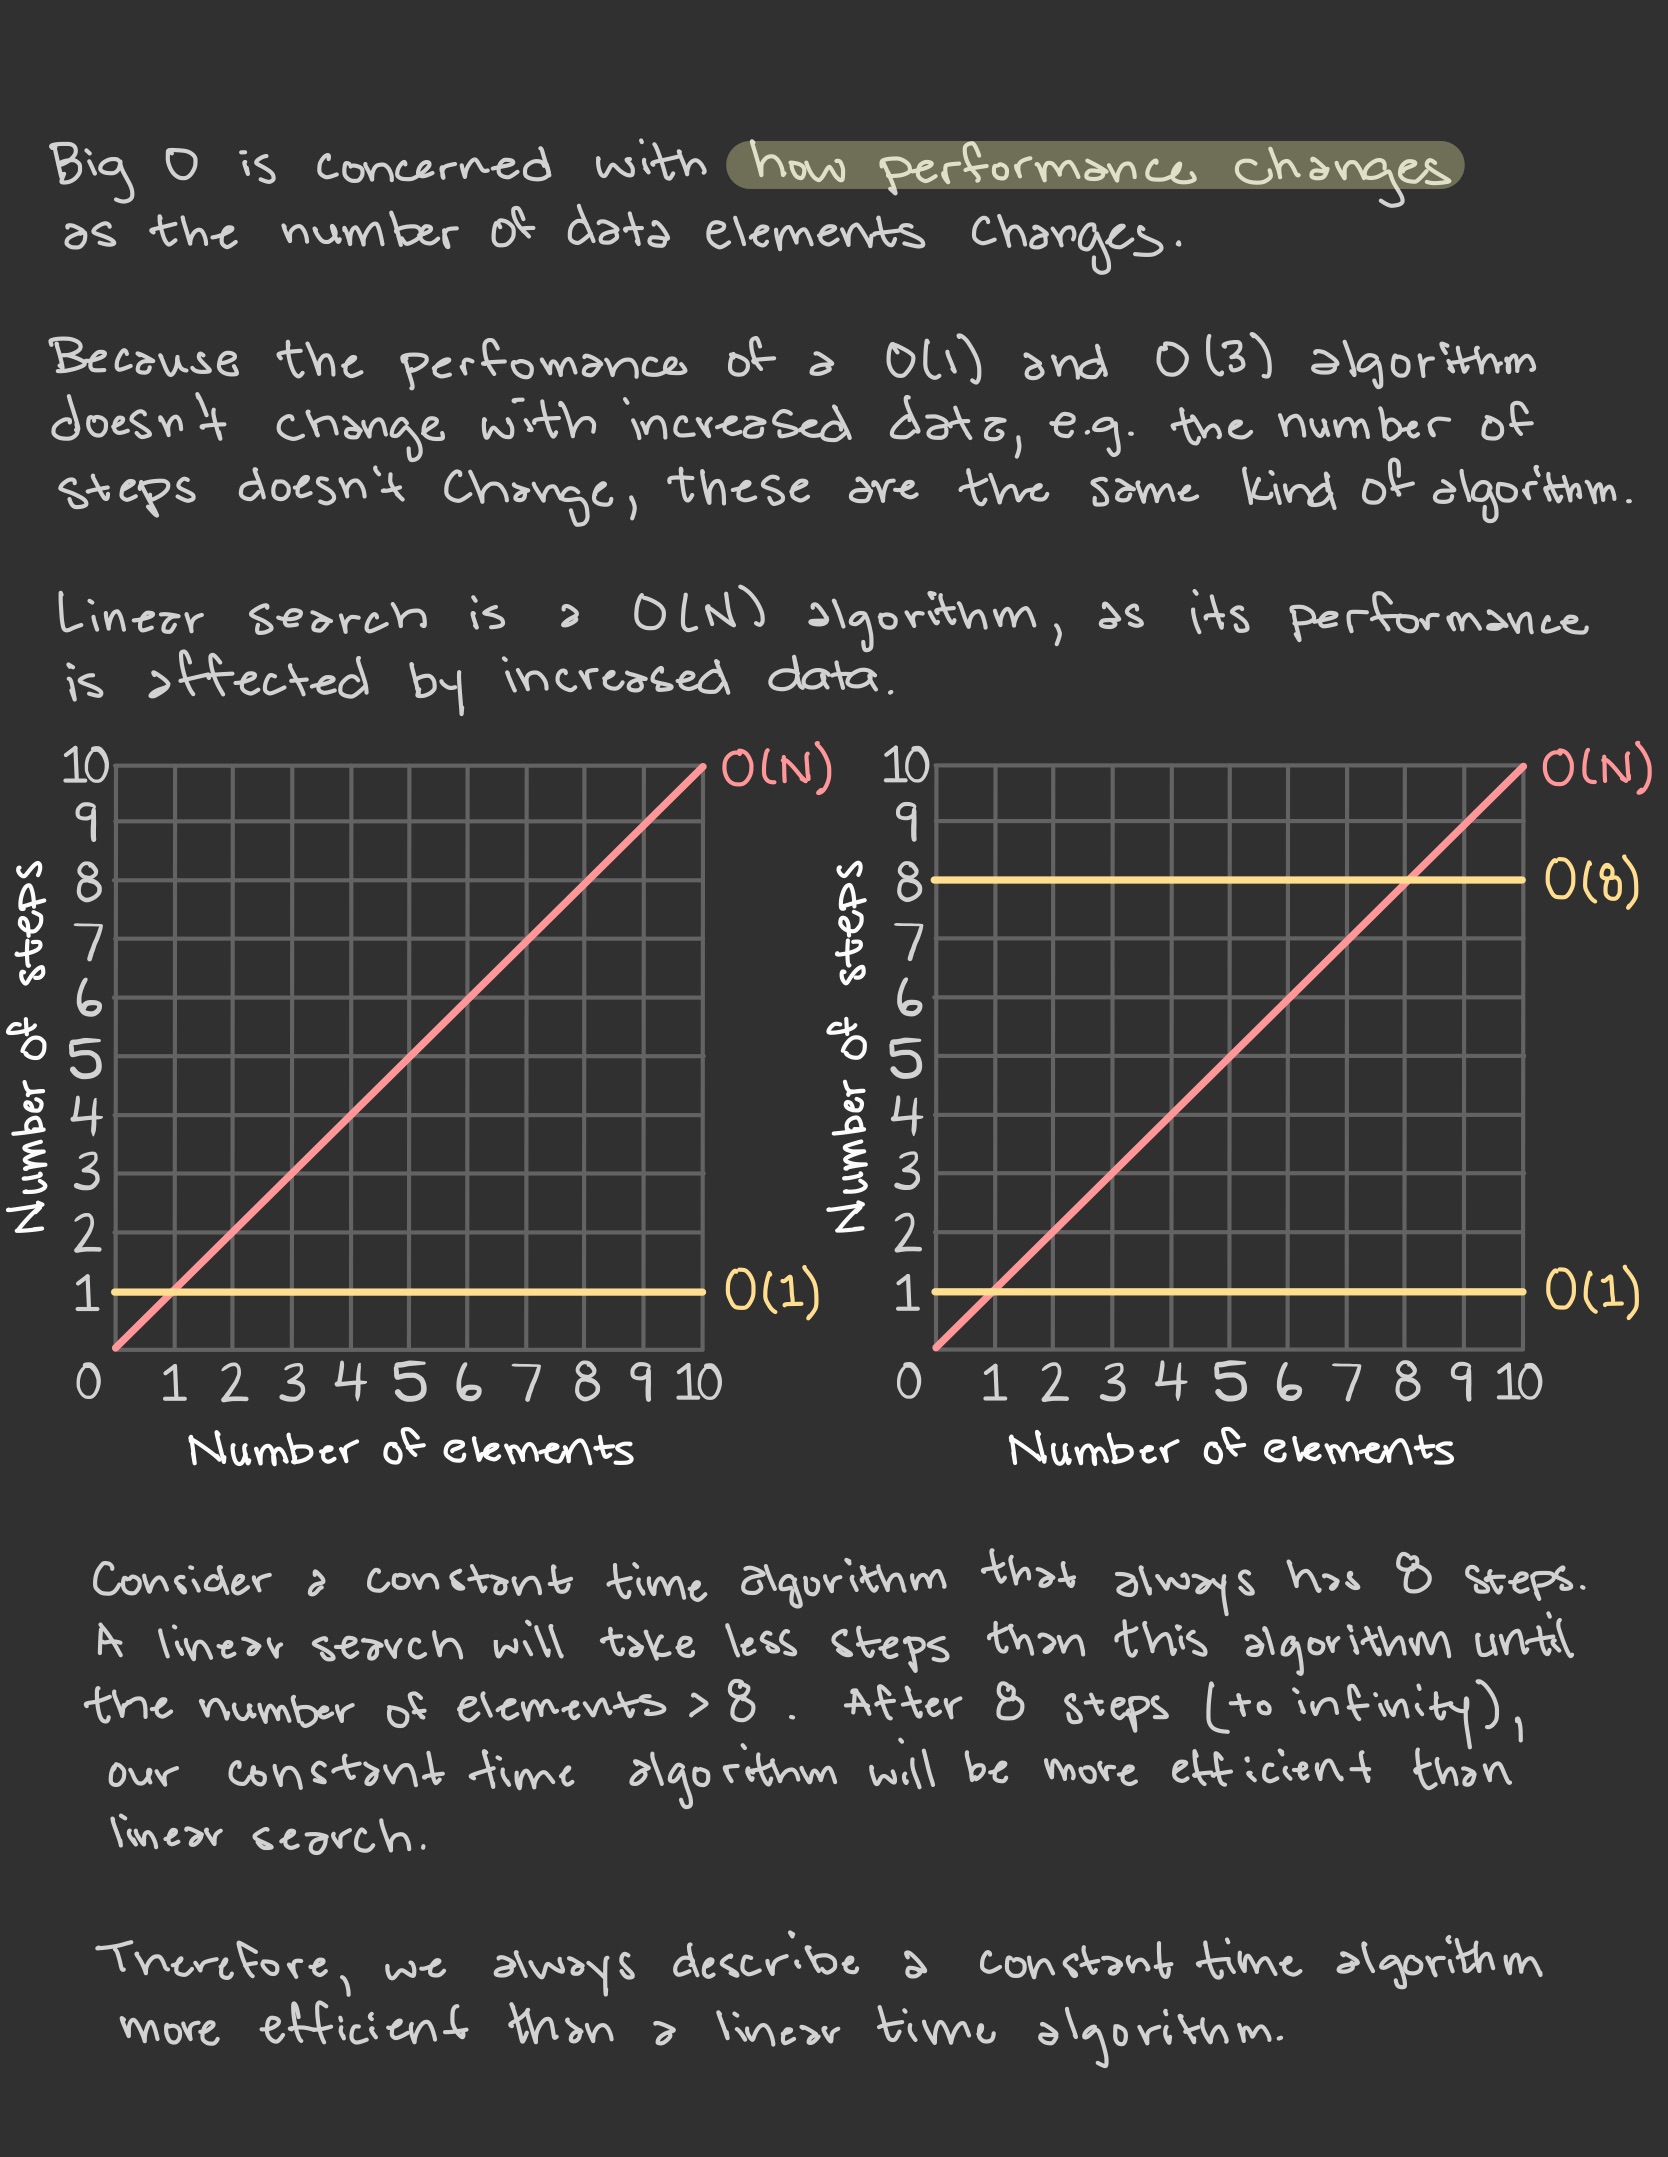 Big O is concerned with how performance changes
as the number of data elements changes.
Because the perfomance of a O(1) and O(3) algorithm
doesn't change with increased data, e.g. the number of
steps doesn't change, these are the same kind of algorithm.
Linear search is a O(N) algorithm, as its performance
is affected by increased data.
10
9
8
7
6
5
4
3
2
1
0
Number of steps
O(N)
O(1)
1 2 3 4 5 6 7 8 9 10
Number of elements
10
9
8
7
6
5
4
3
2
1
0
Number of steps
O(N)
O(8)
O(1)
1 2 3 4 5 6 7 8 9 10
Number of elements
Consider a constant time algorithm that always has 8 steps.
A linear search will take less steps than this algorithm until
the number of elements > 8. After 8 steps (to infinity),
our constant time algorithm will be more efficient than
linear search.
Therefore, we always describe a constant time algorithm
more efficient than a linear time algorithm.